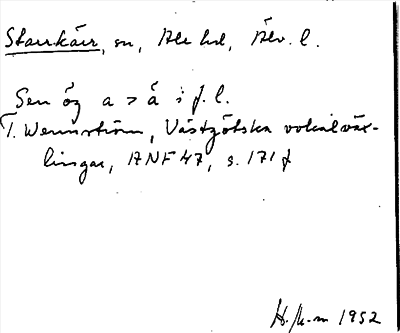 Starrkärr, sn, Ale hd, Älv. l.
Sen ög a > å i f. l.
T. Wennström, Västgötska vokalväx-
lingar, ANF 47, s. 171 f
H. J-m 1952